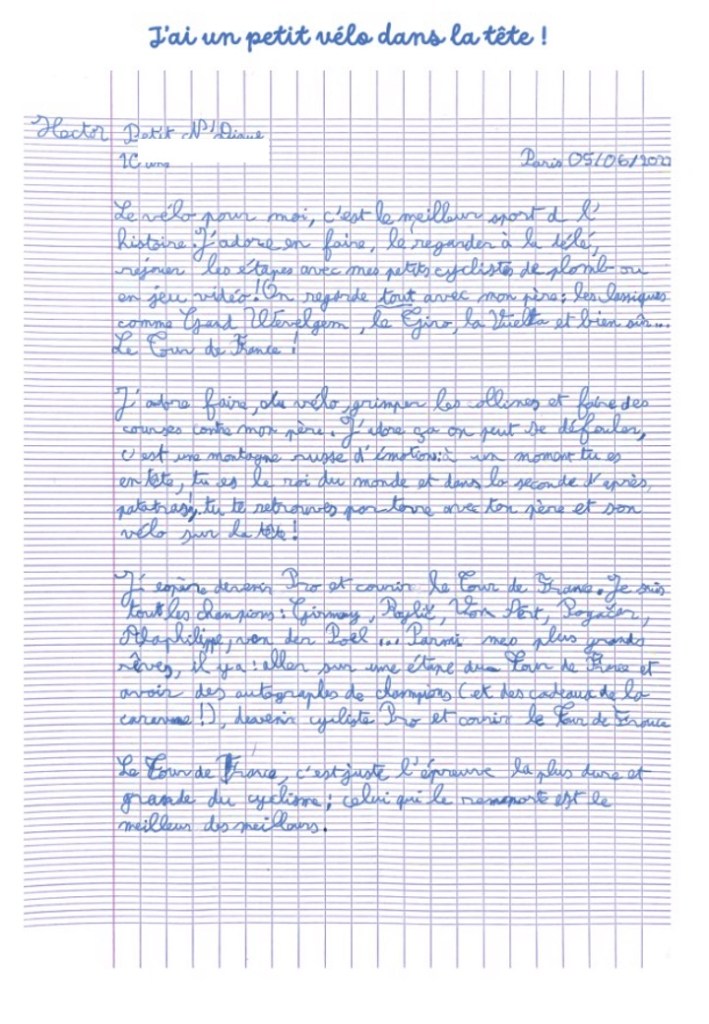 J'ai un petit vélo dans la tête !
Hector Petit N'Diaye
10 ans
Paris 05/06/202
Le vélo pour moi, c'est le meilleur sport d l'
histoire. J'adore en faire, le regarder à la télé,
rejouer les étapes avec mes petits cyclistes de plomb ou
en jeu vidéo ! On regarde tout avec mon père : les classiques
comme Gand Wevelgem, le Giro, la Vuelta et bien sûr...
Le Tour de France !
J'adore faire, du vélo, grimper les collines et faire des
courses contre mon père. J'adore ça on peut se défouler,
c'est une montagne russe d'émotion : à un moment tu es
en tête, tu es le roi du monde et dans la seconde d'après,
patatras, tu te retrouves par terre avec ton père et son
vélo sur la tête !
J'espère devenir Pro et courir le Tour de France. Je suis
tout les champions : Girmay, Roglič, Van Aert, Pogačar,
Alaphilippe, van der Poel ... Parmi mes plus grands
rêves, il y a : aller sur une étape du Tour de France et
avoir des autographes de champions (et des cadeaux de la
caravane !), devenir cycliste Pro et courir le Tour de France
Le Tour de France, c'est juste l'épreuve la plus dure et
grande du cyclisme ; celui qui le remporte est le
meilleur des meilleurs.